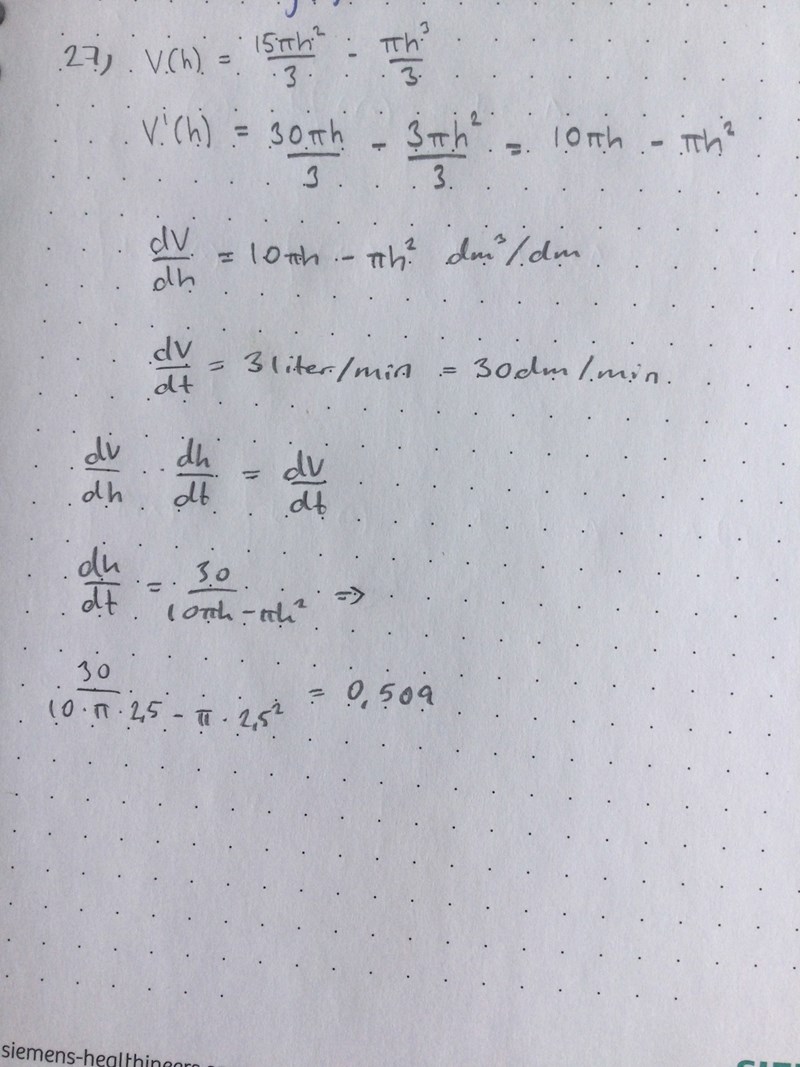 27) V(h) = 15πh²/3 - πh³/3
V'(h) = 30πh/3 - 3πh²/3 = 10πh - πh²
dV/dh = 10πh - πh² dm³/dm
dV/dt = 3 liter/min = 30dm/min.
dv/dh · dh/dt = dv/dt
dh/dt = 30/10πh-πh² ⇒
30/10·π·2,5 - π·2,5² = 0,509
siemens-healthineers